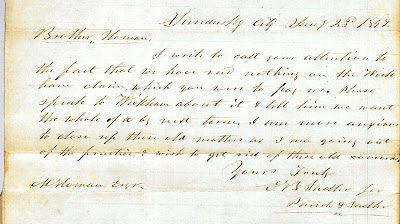 Sandusky City Aug 25th 1857
Brother Homan,
I write to call your attention to
the fact that we have recd nothing on the Wick
ham claim, which you were to pay us. Please
speak to Wickham about it & tell him we want
the whole of it by next term. I am more anxious
to close up these old matters as I am going out
of the practice & wish to get rid of these old concerns
Yours Truly
E B Sadler for
Parish & Sadler
M Homan Esqr